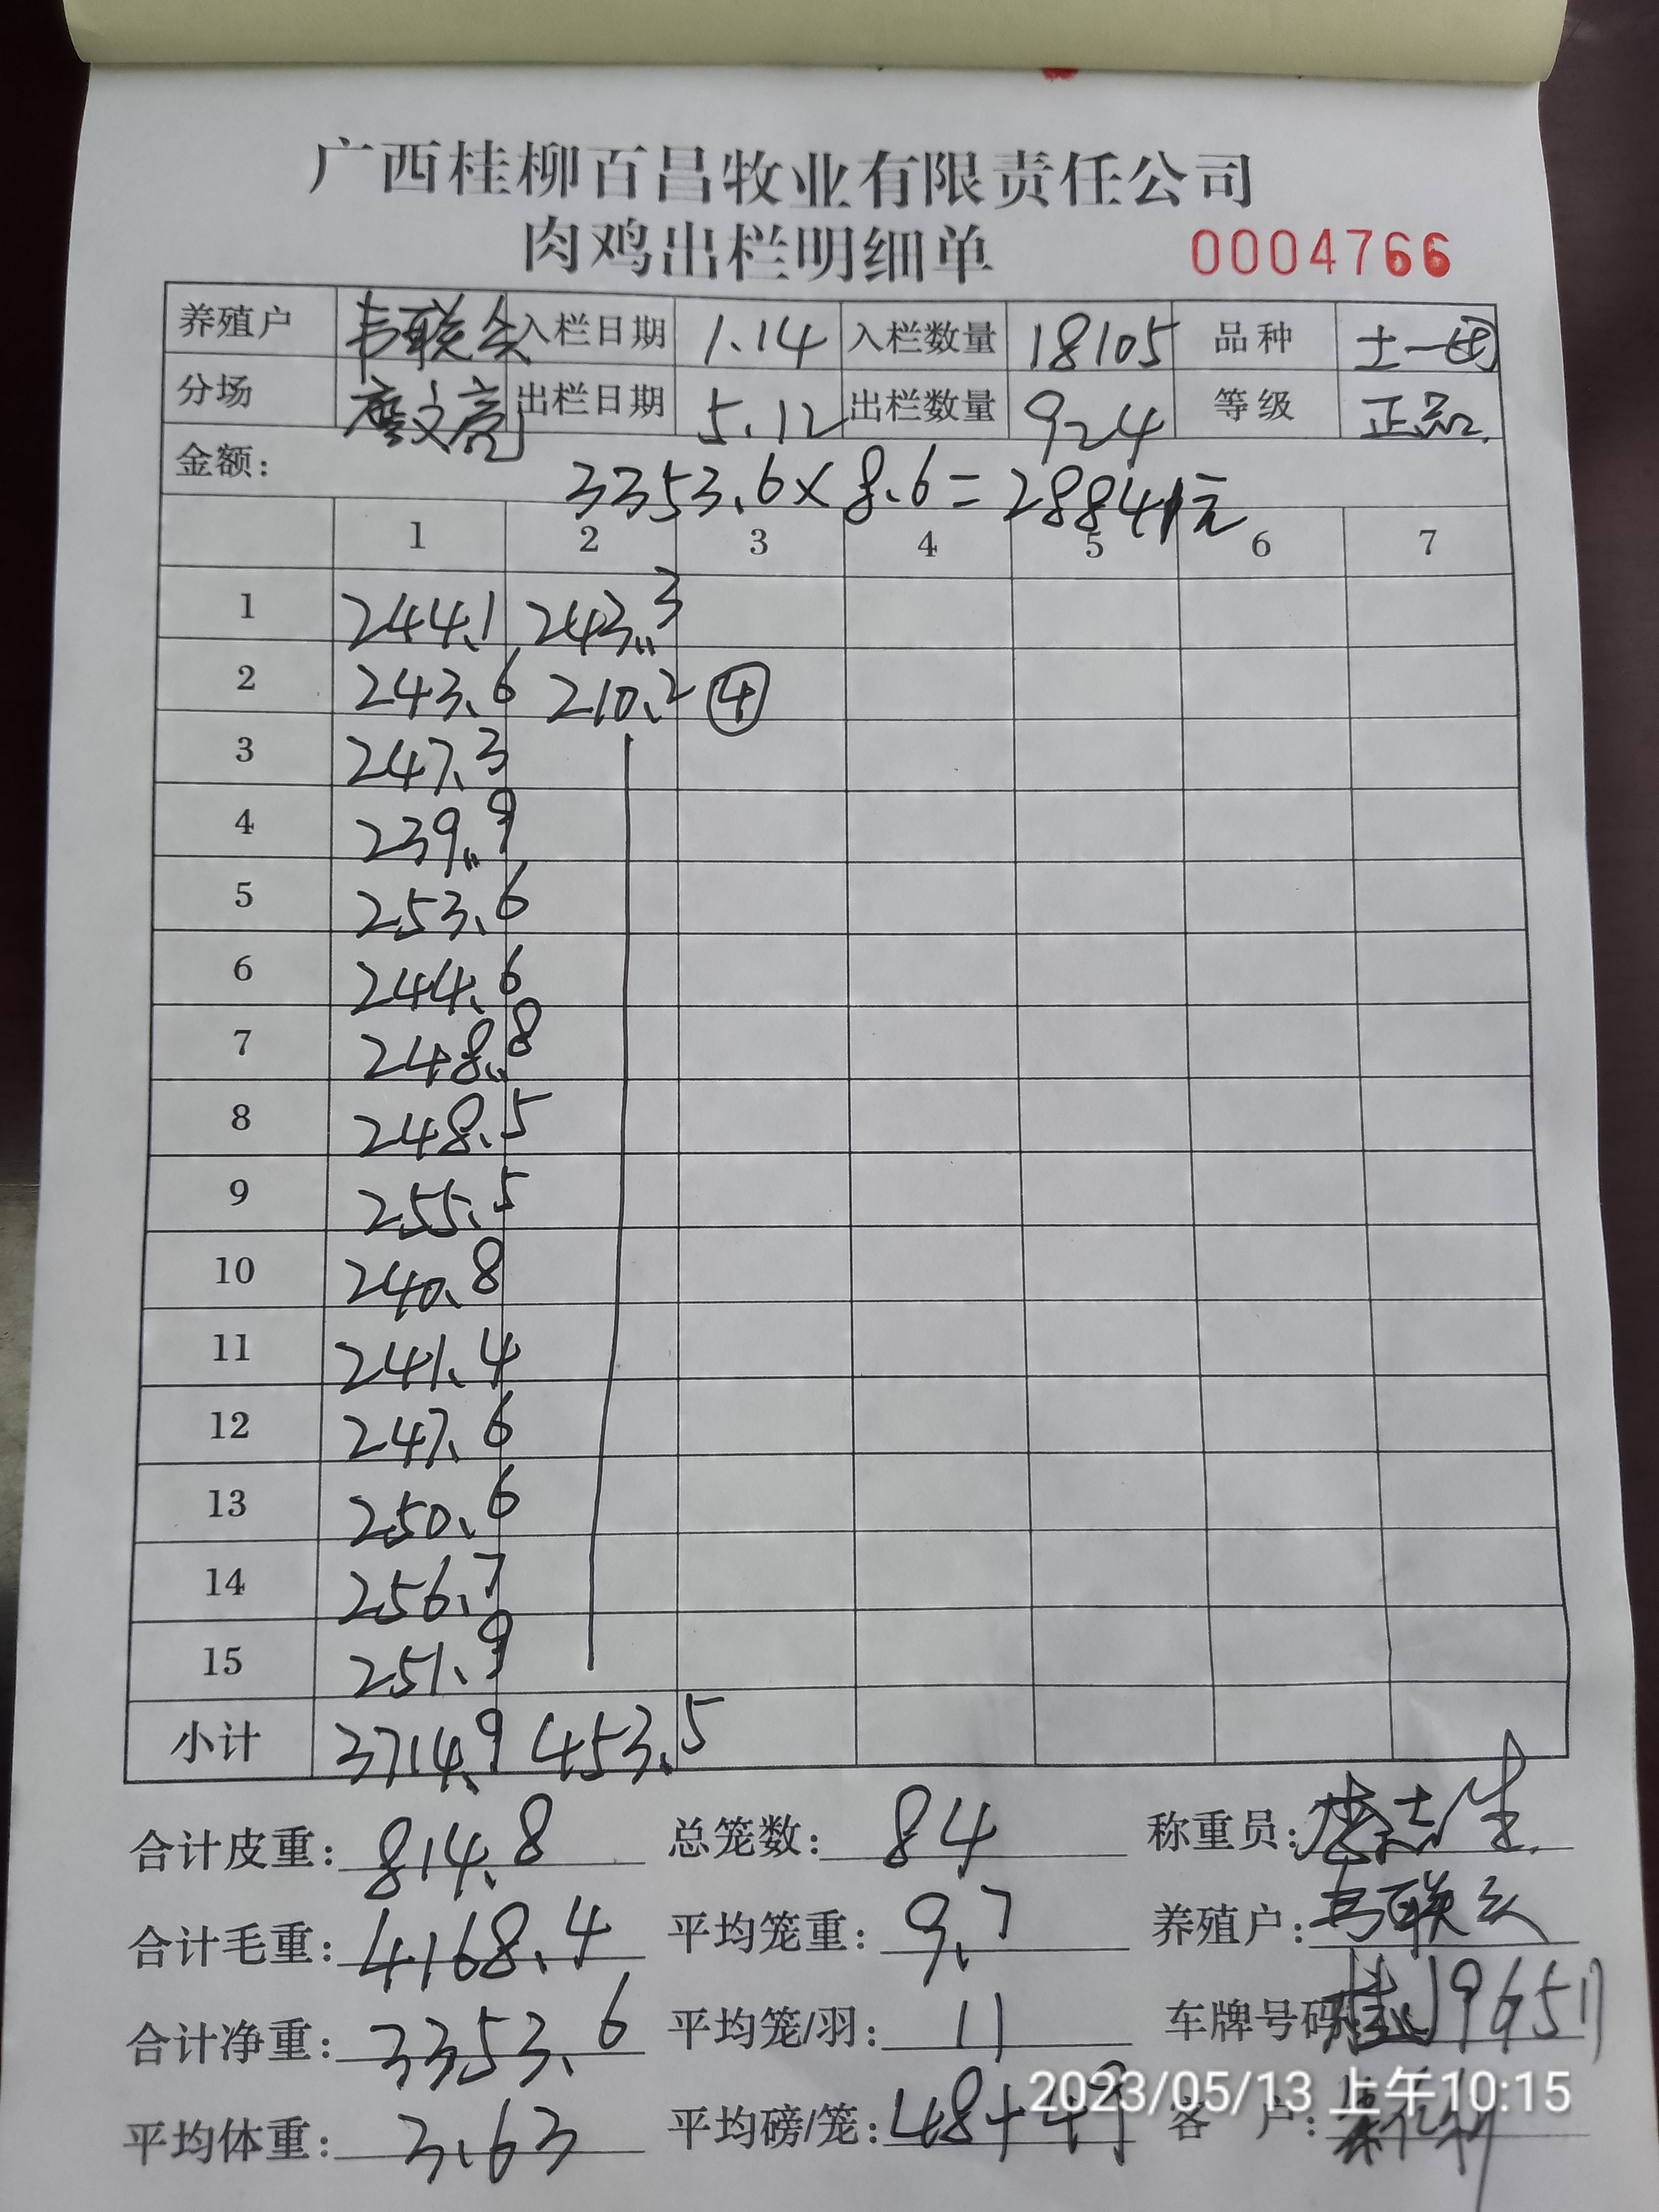 广西桂柳百昌牧业有限责任公司
肉鸡出栏明细单 0004766
养殖户 韦联会 入栏日期 1.14 入栏数量 18105 品种 土一
分场 廖文亮 出栏日期 5.12 出栏数量 924 等级 正品
金额: 3353.6×8.6=28841元
1 2 3 4 5 6 7
1 244.1 243.3
2 243.6 210.2 ④
3 247.3
4 239.9
5 253.6
6 244.6
7 248.8
8 248.5
9 255.5
10 240.8
11 241.4
12 247.6
13 250.6
14 256.7
15 251.9
小计 3714.9 453.5
合计皮重: 814.8 总笼数: 84 称重员:
合计毛重: 4168.4 平均笼重: 9.7 养殖户: 韦联会
合计净重: 3353.6 平均笼/羽: 11 车牌号码
平均体重: 3.63 平均磅/笼: 客户:
2023/05/13 上午10:15